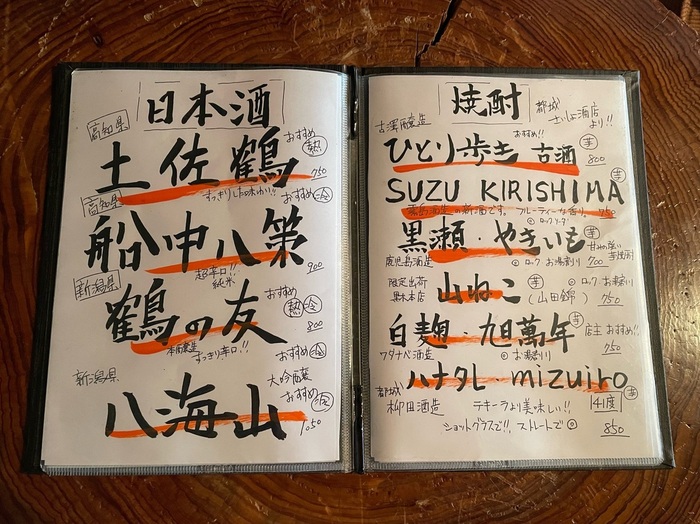 日本酒
高知県
おすすめ 熱
土佐鶴 750
すっきりした味わい!!
高知県
おすすめ 冷
船中八策 900
超辛口!!
純米
新潟県
おすすめ
熱 冷
鶴の友 800
本醸造 すっきり辛口!!
新潟県
おすすめ 冷
大吟醸
おすすめ 冷
八海山 1,050
焼酎
都城
さいしょ酒店
より!!
古澤醸造
おすすめ!! 芋
ひとり歩き 古酒 800
芋
SUZU KIRISHIMA
霧島酒造の新酒です。フルーティーな香り。 750
◎ロックソーダ
黒瀬・やきいも 芋
鹿児島酒造 ◎ロック お湯割り 700
限定出荷
黒木本店
山ねこ 芋 ◎ロック お湯割り
(山田錦) 750
白麹・旭萬年 芋 店主おすすめ!!
ワタナベ酒造 ◎お湯割り 750
ハナタレ mizuiro 芋
都城
柳田酒造 テキーラより美味しい!! 41度
ショットグラスで!! ストレートで◎ 850